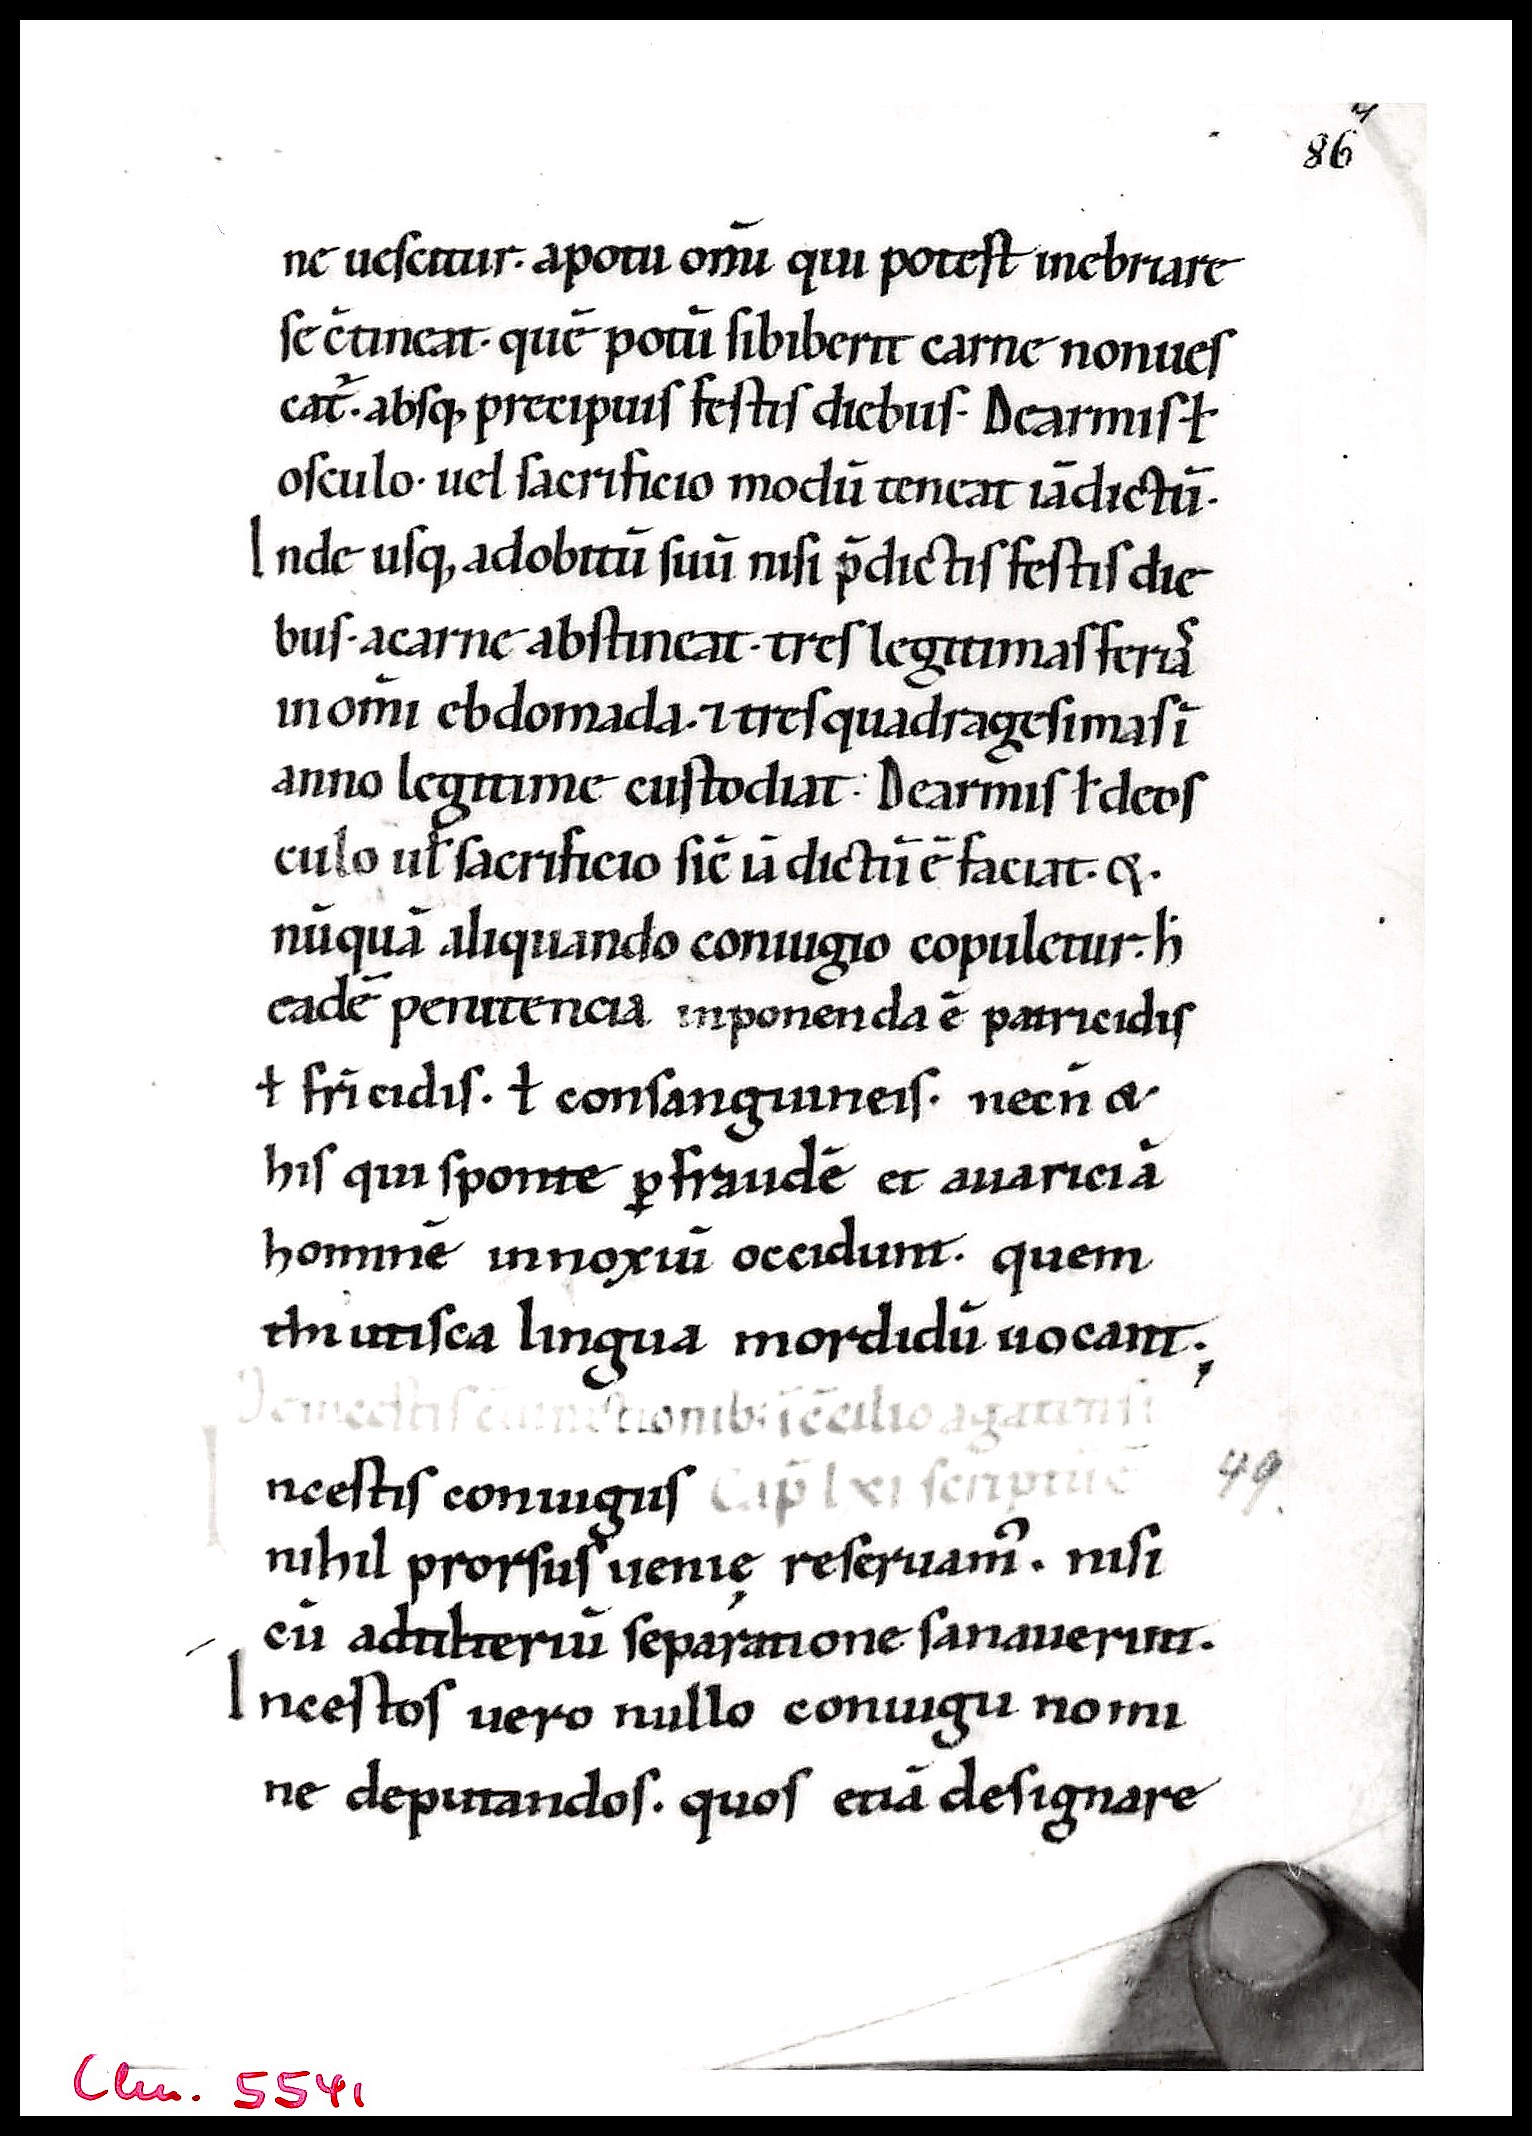 86
ne uescitur. apotu om̅u qui potest inebriare
se c̅tineat. que̅ potu̅ sibiberit carne nonues
cat᷑. absq; precipuis festis diebus. Dearmis ł
osculo. uel sacrificio modu̅ teneat ia̅dictu̅.
Inde usq; adobitu̅ suu̅ nisi p̅dictis festis die
bus. acarne abstineat. tres legitimas ferias
in om̅i ebdomada. ⁊ tres quadragesimas i̅
anno legitime custodiat. Dearmis ł deos
culo ul̅ sacrificio sic̅ ia̅ dictu̅ e̅ faciat. &.
nu̅qua̅ aliquando coniugio copuletur. h̅
eade̅ penitencia inponenda e̅ patricidis
ł fr̅icidis. ł consanguineis. necn̅ &
his qui sponte ꝑ fraude̅ et auaricia̅
homine̅ innoxiu̅ occidunt. quem
thiutisca lingua mordidu̅ uocant.;
De incestis c̅iunctionib; i̅ c̅cilio agatensi
Incestis coniugiis Cap̅ lxi scriptu̅ e̅
49
nihil prorsus uenię reseruam᷒. nisi
cu̅ adulteriu̅ separatione sanauerint.
Incestos uero nullo coniugii nomi
ne deputandos. quos etia̅ designare
Clm. 5541